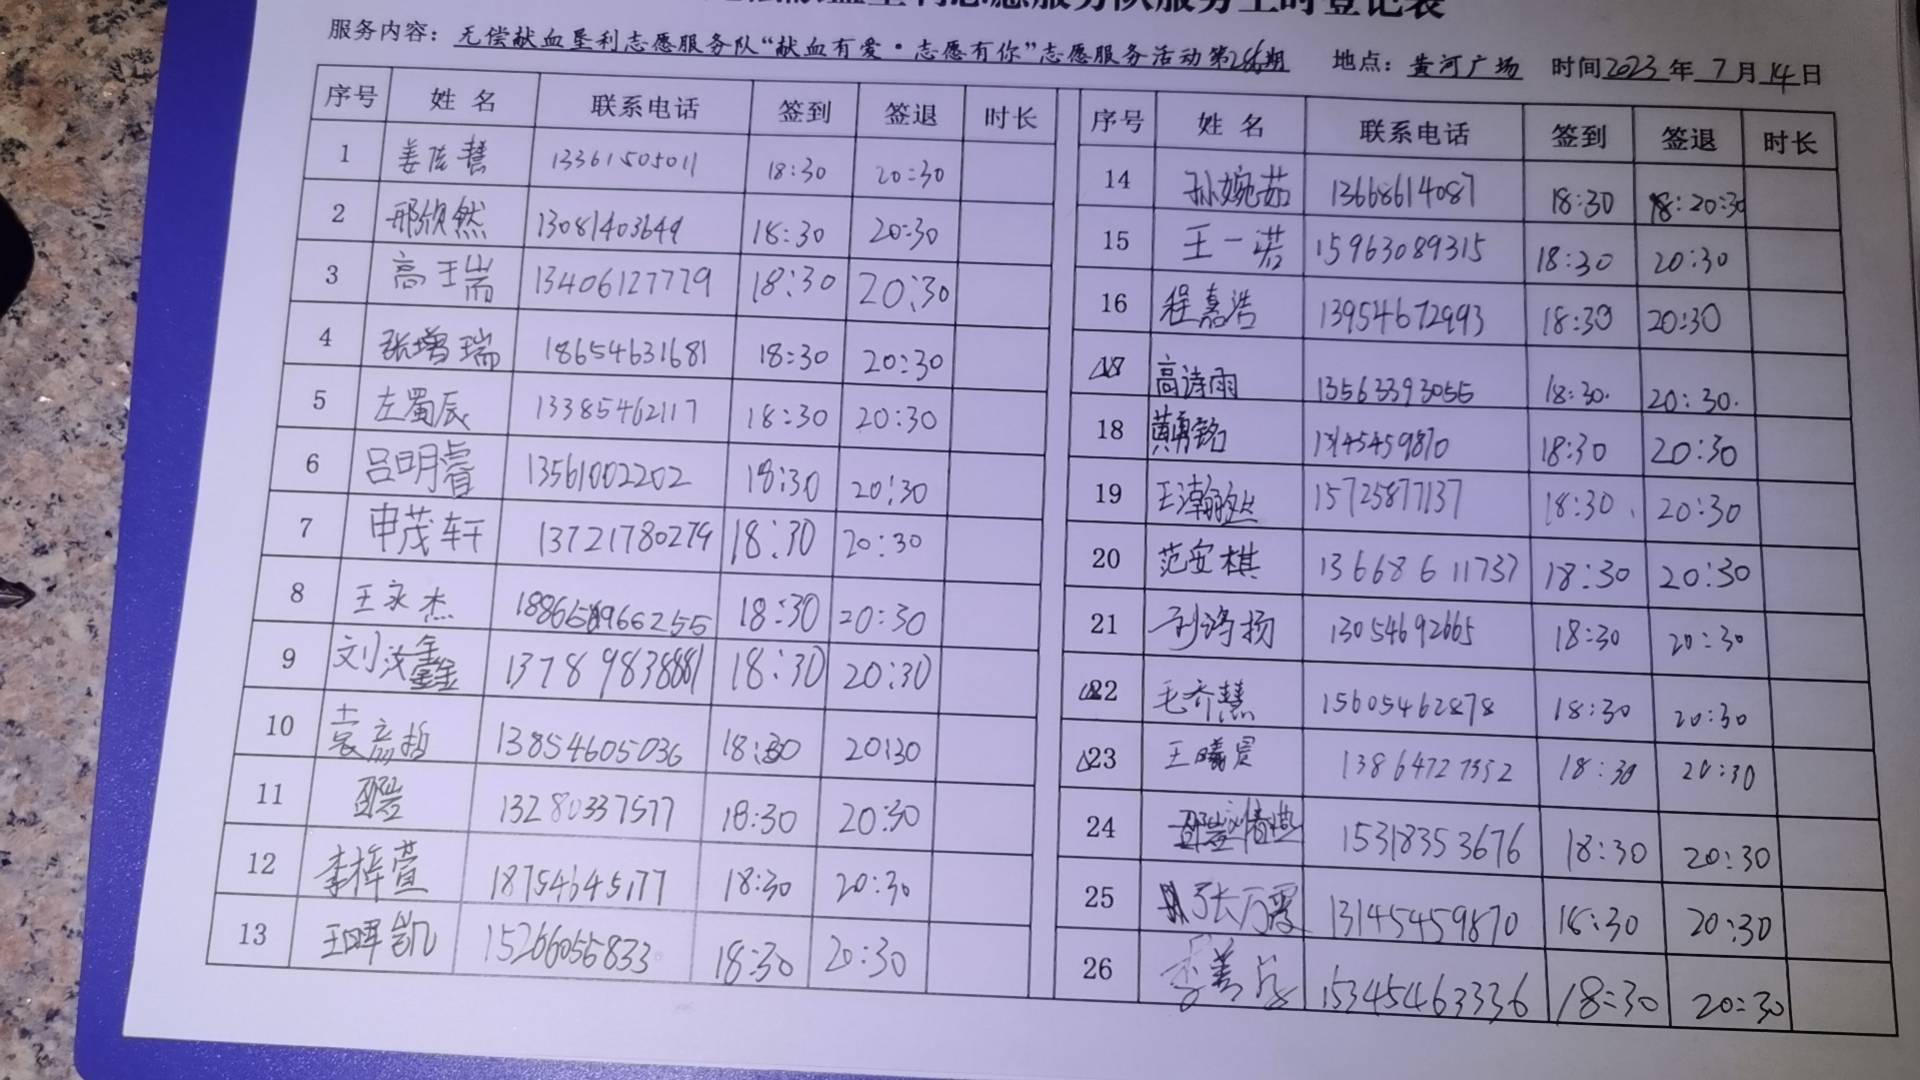 服务内容：无偿献血垦利志愿服务队“献血有爱·志愿有你”志愿服务活动第 期 地点：黄河广场 时间2023年7月14日
序号 姓名 联系电话 签到 签退 时长
1 姜佳慧 13361505011 18:30 20:30
2 邢欣然 13081403649 18:30 20:30
3 高王瑞 13406127729 18:30 20:30
4 张增瑞 18654631681 18:30 20:30
5 左蜀辰 13385462117 18:30 20:30
6 吕明睿 13561002202 18:30 20:30
7 申茂轩 13721780279 18:30 20:30
8 王永杰 18:30 20:30
9 刘汶鑫 18:30 20:30
10 袁彦哲 13854605036 18:30 20:30
11 13280337577 18:30 20:30
12 李梓萱 18754645177 18:30 20:30
13 王晖凯 15266055833 18:30 20:30
序号 姓名 联系电话 签到 签退 时长
14 孙婉茹 13668614087 18:30 18:20:30
15 王一诺 15963089315 18:30 20:30
16 程嘉浩 13954672993 18:30 20:30
17 高诗雨 13563393055 18:30. 20:30.
18 黄勇铭 18:30 20:30
19 王瀚 15725877137 18:30 20:30
20 范安棋 13668611737 18:30 20:30
21 刘鸿扬 13054692665 18:30 20:30
22 毛乔慧 15605462878 18:30 20:30
23 王曦晨 13864727352 18:30 20:30
24 15318353676 18:30 20:30
25 张万霞 13145459870 18:30 20:30
26 李善 15345463336 18:30 20:30